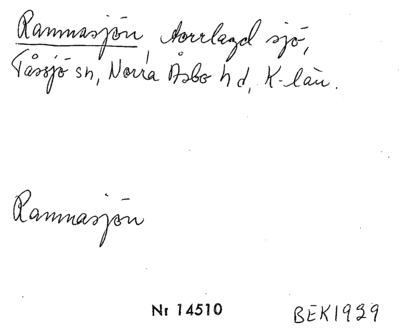 Rammasjön torrlagd sjö,
Tåssjö sn, Norra Åsbo hd, K-län.
Rammasjön
Nr 14510
BEK1929